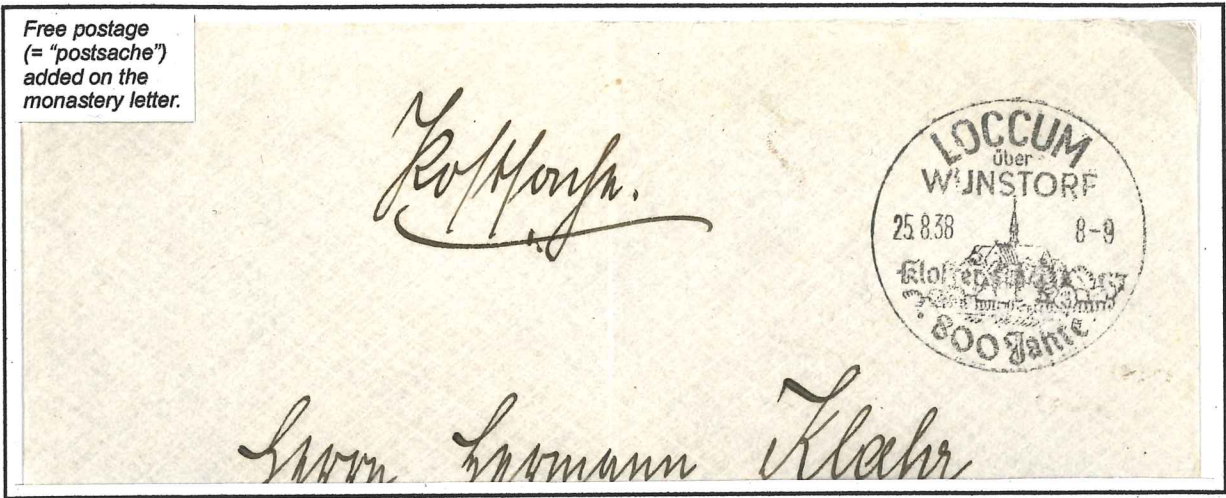 Free postage
(= "postsache")
added on the
monastery letter.
Postsache.
LOCCUM
über
WUNSTORF
25.8.38 8-9
Kloster
800 Jahre
Herrn Hermann Klahr